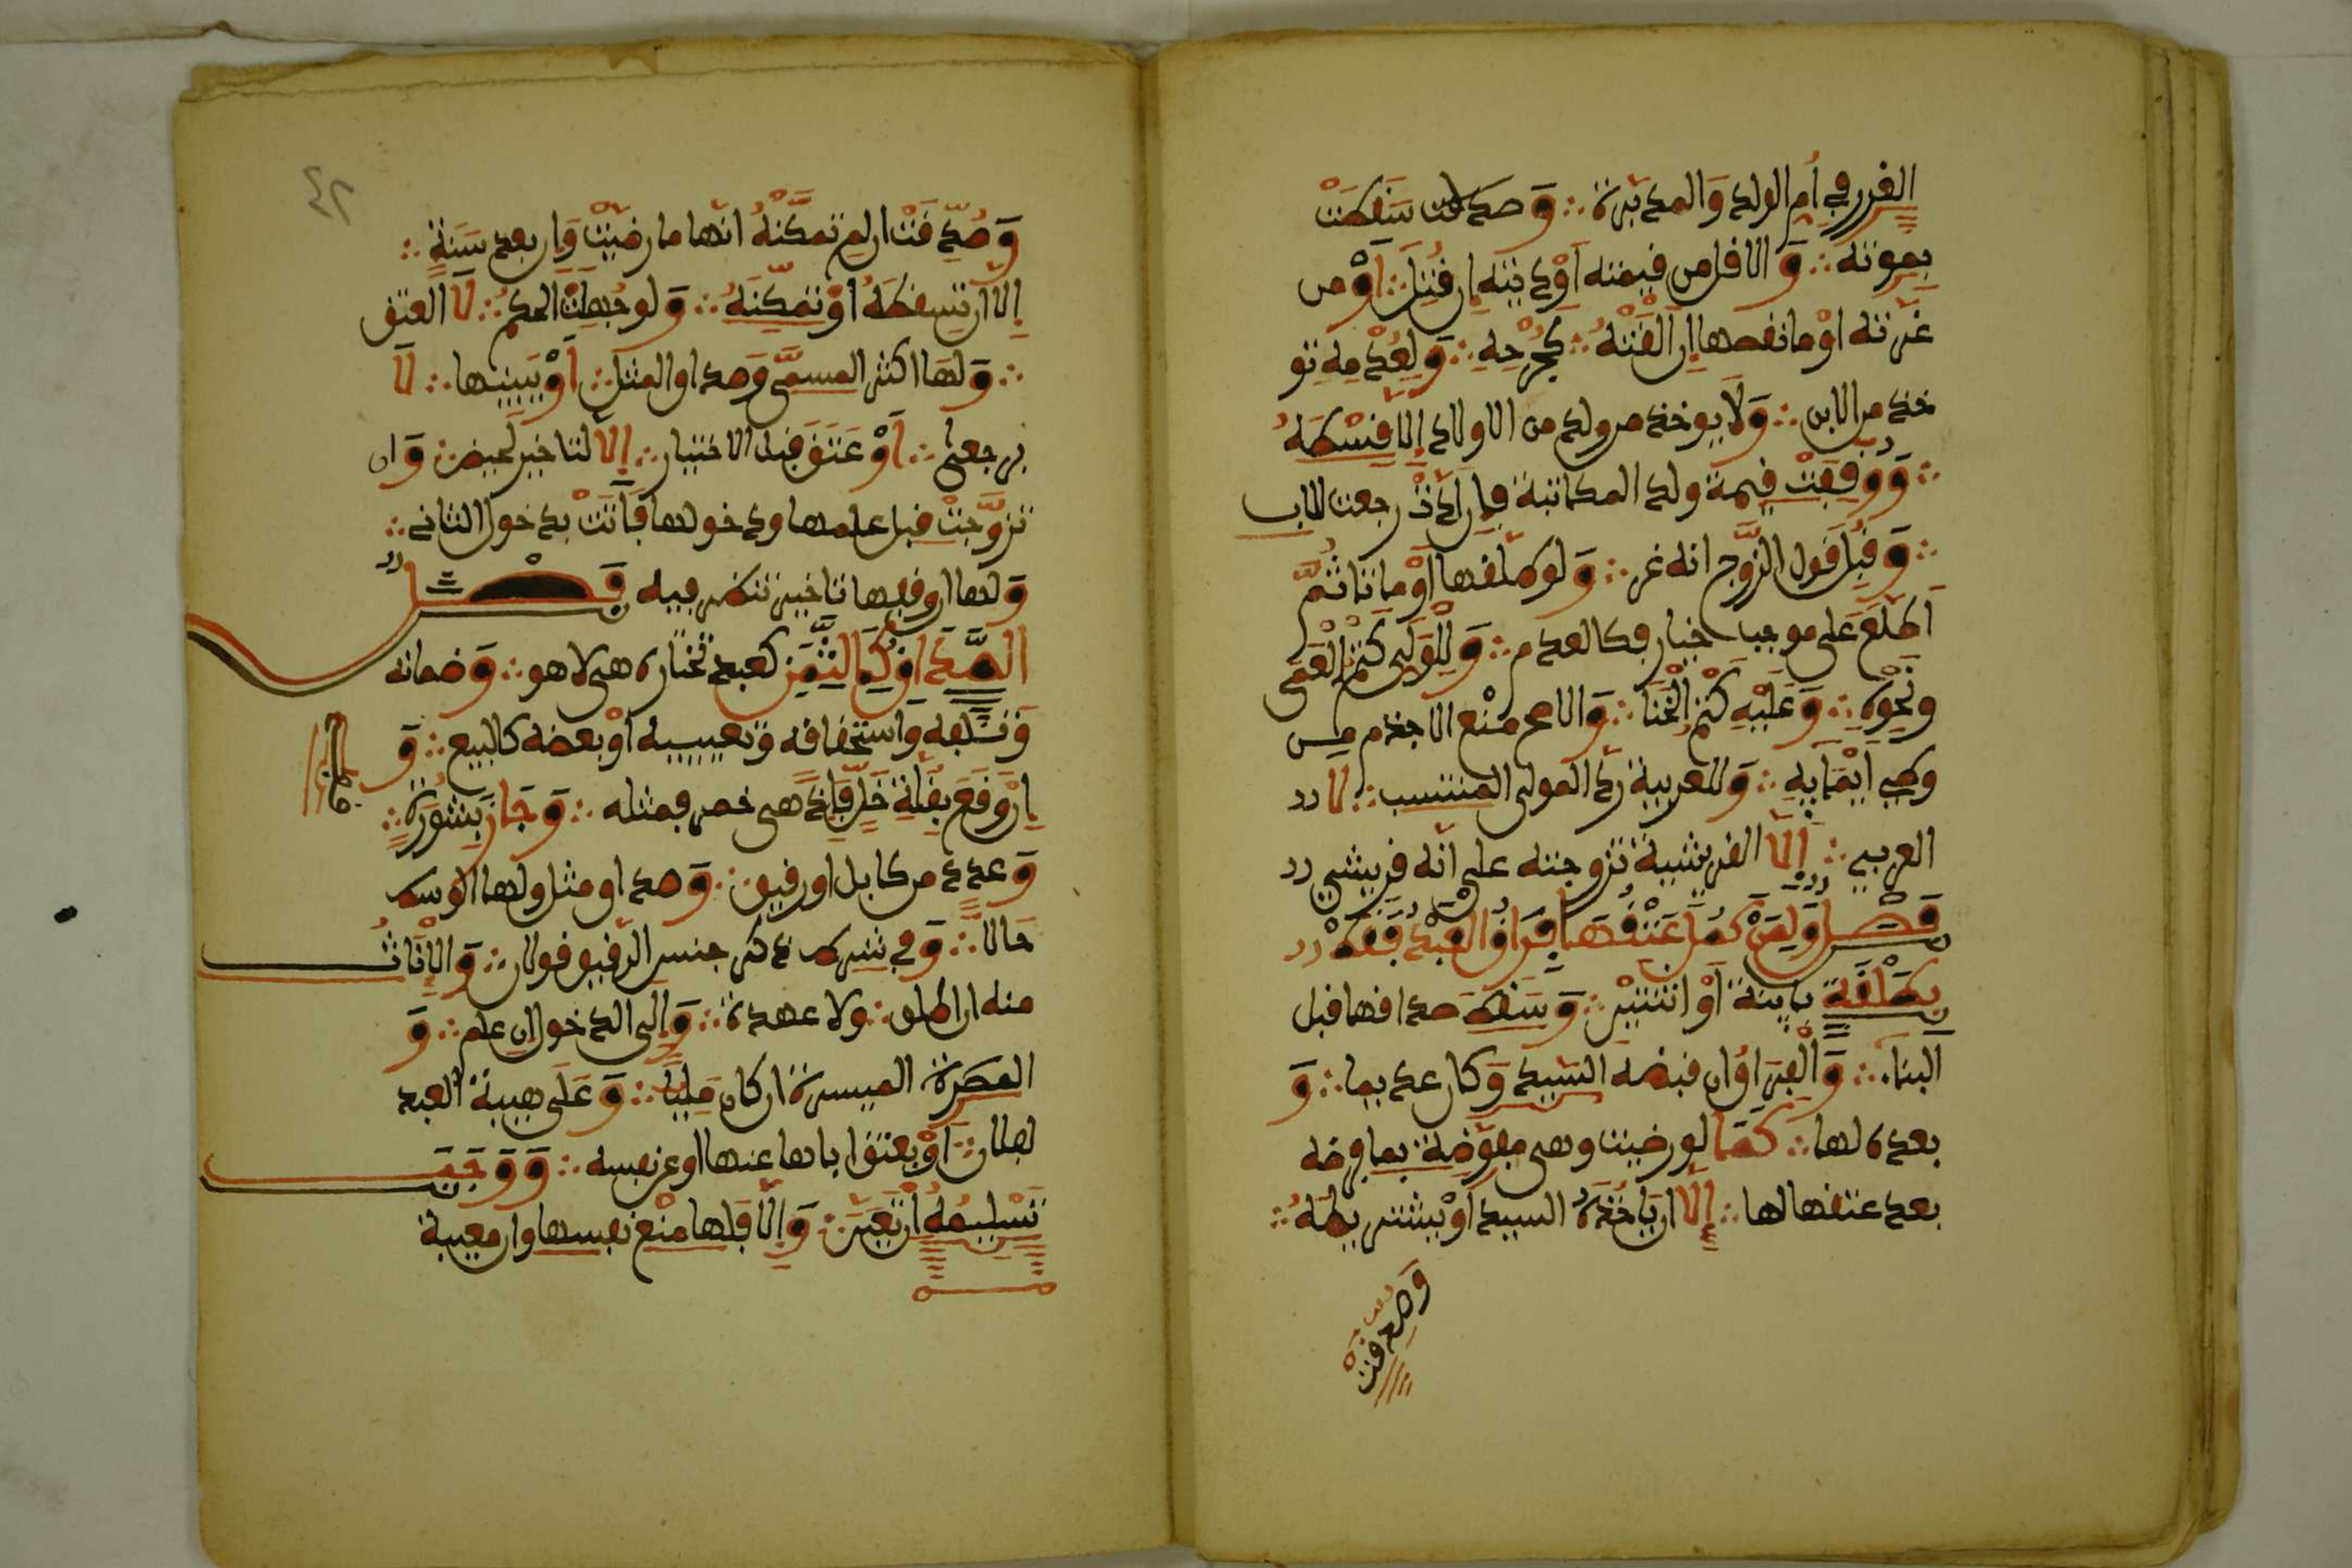 الغرر في أم الولد والمدبرة ∴ وَصدفت سَقَطَتْ
بموته ∴ وَالاقل من قيمته أَوْ ديته إن قُتِلَ ∴ أَوْ من
غرته أوْ ما نقصها إن أَلقَتْهُ ∴ كجُرْحِهِ ∴ وَلِعُدْمِهِ تو
خذ من الابن ∴ وَلَا يوخذ من ولد من الاولاد إِلَّا قِسْطَهُ
∴ وَوقِفَتْ قيمة ولد المكاتبة فإن أَدَّتْ رجعت للاب
∴ وَقُبِلَ قول الزَّوج انه غر ∴ وَلو طلقها أَوْ ماتا ثُمَّ
اطلَعَ على موجب خيار فكالعدم ∴ وَلِلْوَلِي كَتْمُ الْعَمَى
ونَحْوِهِ ∴ وَعَلَيْهِ كَتْمُ الْخَنَا ∴ وَالاصح مَنْع الاجذم مِن
وطئ إِمَائِهِ ∴ وَللعربية ردّ المولى المنتسب ∴ لا
العربي ∴ إِلَّا القريشية تزوجته على أنه قريشي
فَصْل وَلِمَنْ كَمُلَ عِتْقُهَا فِرَاقُ الْعَبْدِ فَقَطْ
بِطَلْقَةٍ بائِنة أَوْ اثنتين ∴ وَسَقَطَ صداقها قبل
الْبناء ∴ وَالْفِرَاقُ ان قبضه السَّيِّد وَكان عديما ∴ وَ
بعده لها ∴ كَمَا لو رضيت وهي مفَوَّضَة بما فرضه
بعد عتقها لها ∴ إِلَّا ان يَأْخُذَهُ السيد أَوْ يشترِطَهُ ∴
وَصُدِّقَتْ
٤٢
وَصُدِّقَتْ ان لم تمكِّنْهُ أنها ما رضيَتْ وَإن بعد سَنَةٍ ∴
إلا ان تسقطَهُ أَوْ تمكِّنَهُ ∴ وَلو جُهِلَتْ الحكمُ ∴ لَا العتق
∴ وَلهَا اكثر المسمَّى وَصداق المثل ∴ أَوْ يُبِينها ∴ لَا
برجعي ∴ أَوْ عَتَقَ قبل الاختيار ∴ إِلَّا لتاخير لحيض ∴ وَان
تزوَّجتْ قبل علمها ودخولها فَاتَتْ بدخول الثاني ∴
وَلها ان وقفها تاخير تنظر فيه فَصل
الصَّدَاقُ كَالثَّمَنِ كعبد تختاره هي لا هو ∴ وَضمانه
وَتلفه وَاستحقاقه وَتعييبه أَوْ بعضه كالبيع ∴ وَ
إن وَقَعَ بِقُلَّةِ خَلٍّ فَإِذَا هي خمر فمثله ∴ وَجَازَ بِشُورَةٍ ∴
وَعدد من كابل او رقيق ∴ وَصداق مثل ولها الوسط
حَالا ∴ وَفي شرط ذكر جنس الرقيق قولان ∴ وَالْإِنَاثُ
منه ان اطلق ∴ ولا عهدة ∴ وَإلى الدخول ان علم ∴ وَ
الميسرة ان كان مَلِيًّا ∴ وَعَلَى هبة العبد
لفلان ∴ أَوْ يعتق اباها عنها او عن نفسه ∴ وَوَجَبَ
تَسْلِيمُهُ إن تَعَيَّنَ ∴ وَإِلَّا فَلها مَنْع نفسها وان معيبة